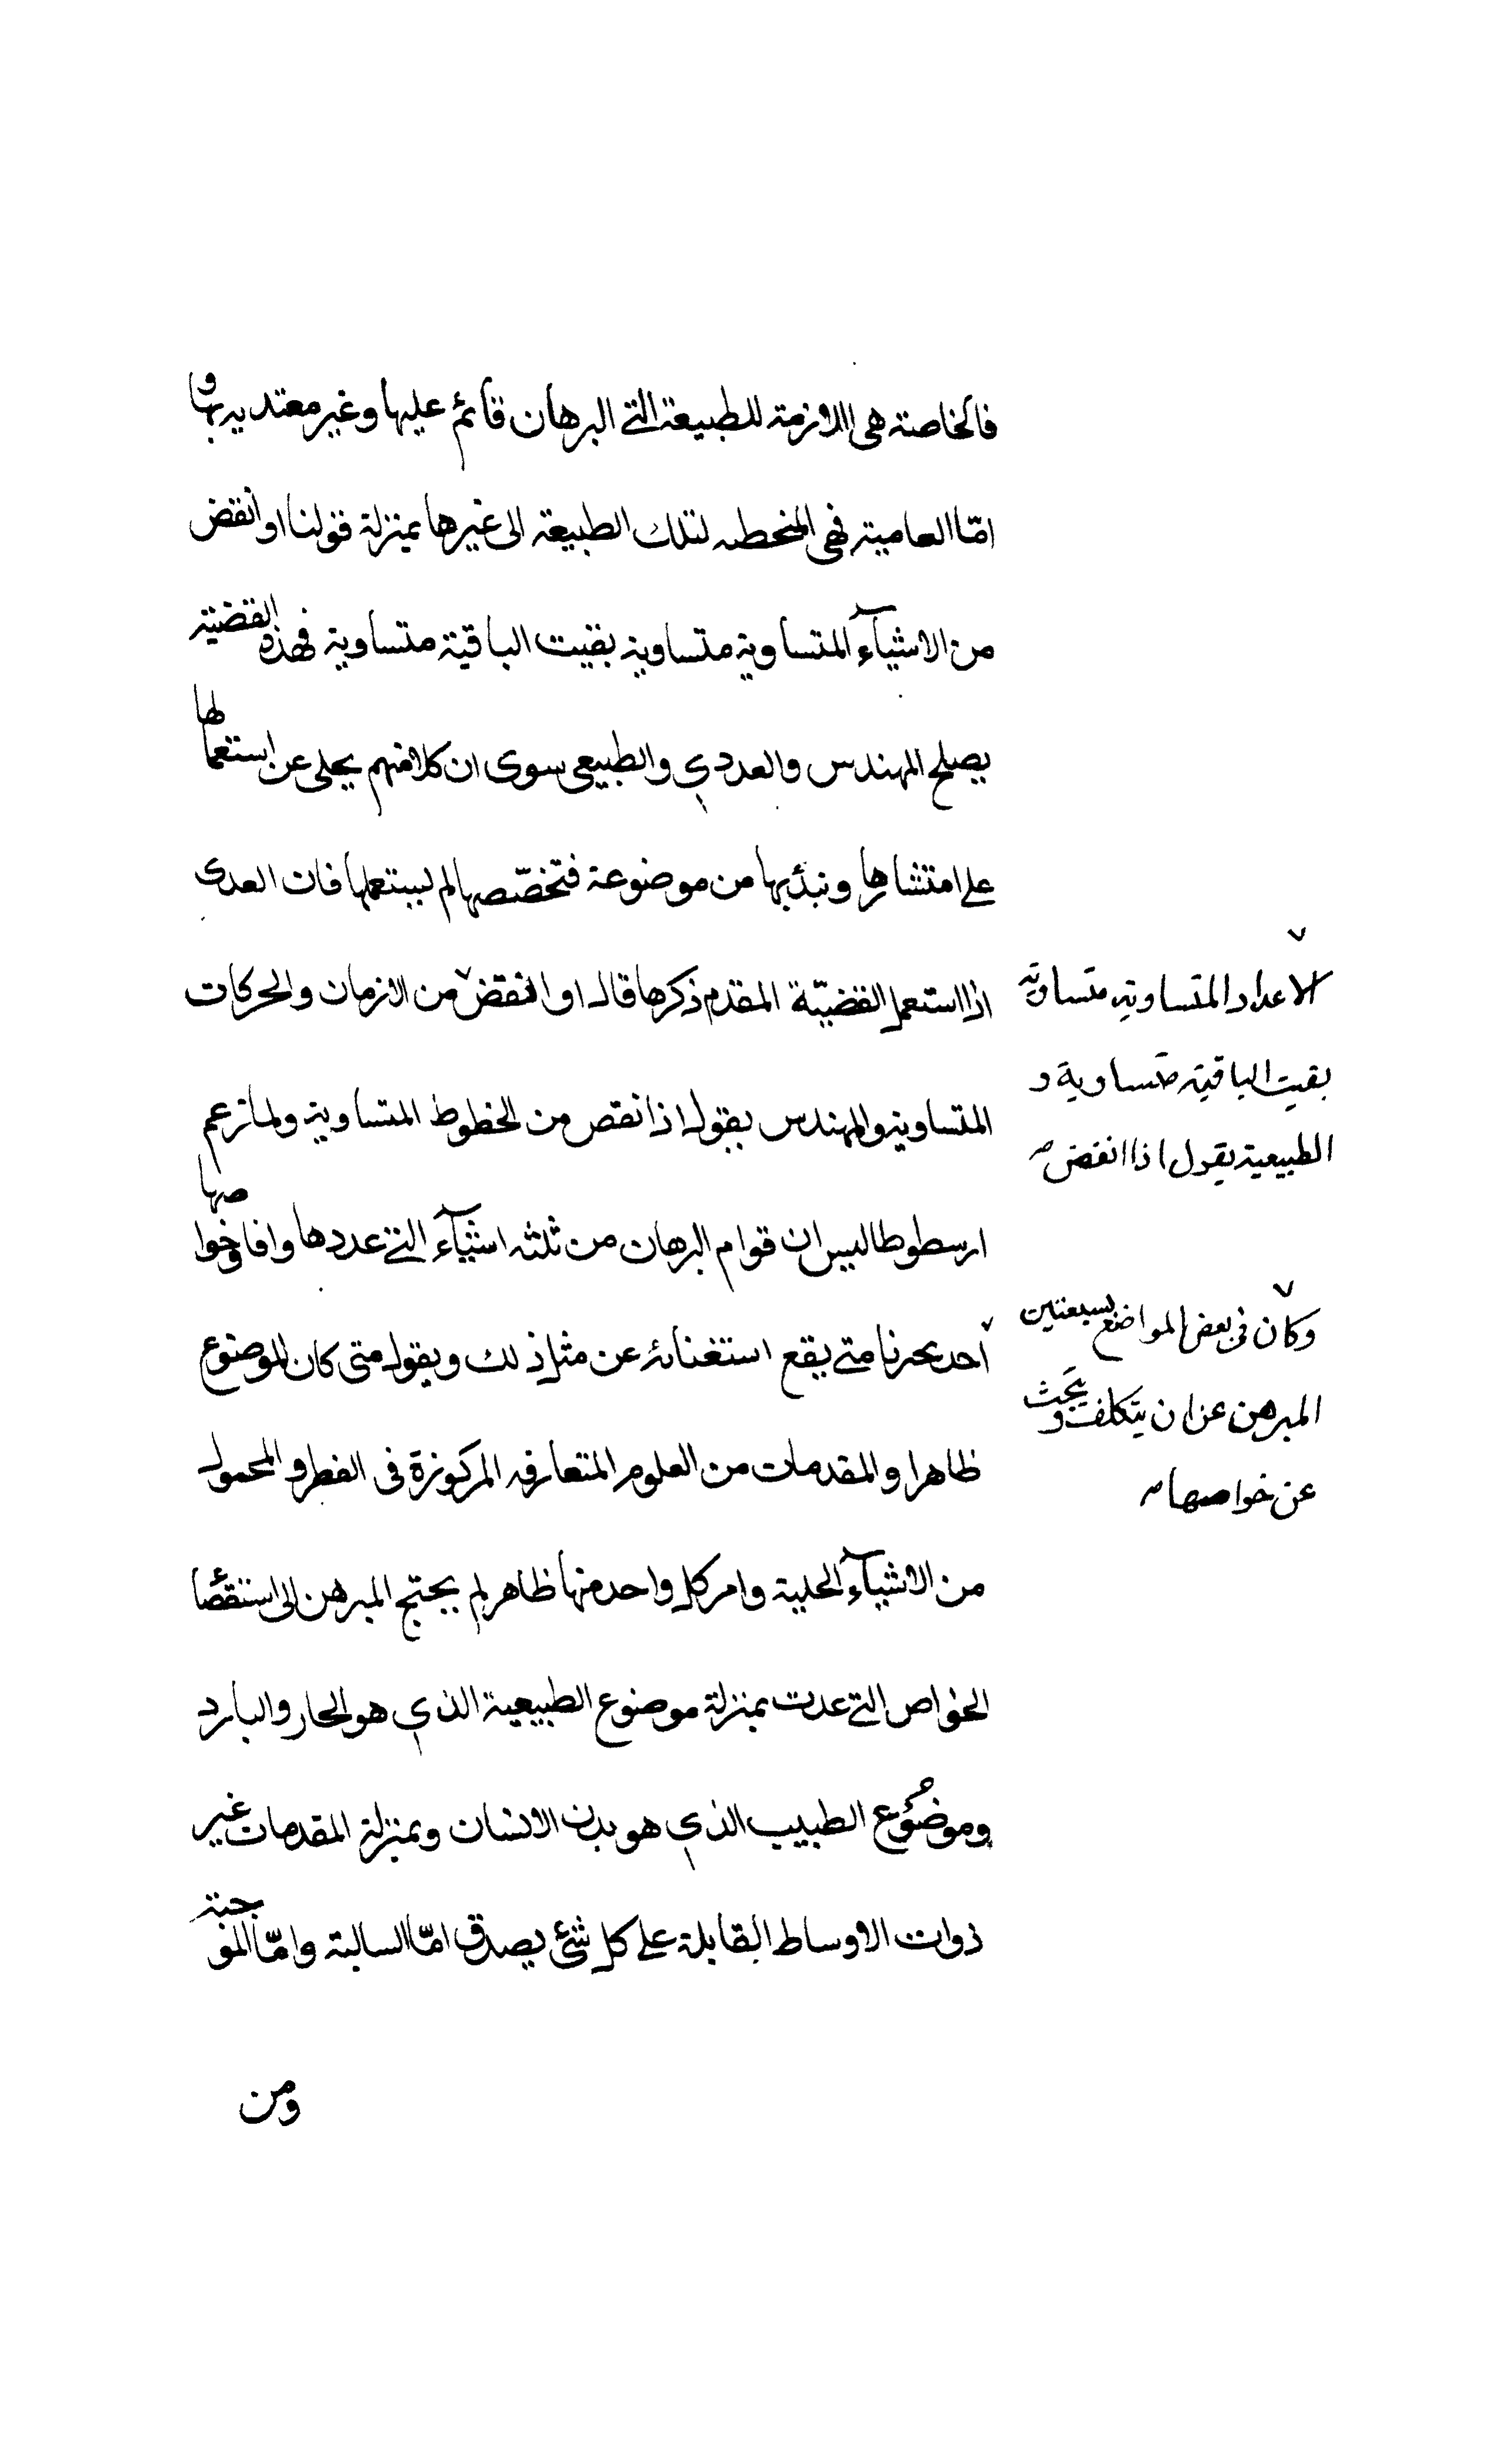 فالخاصة هى اللازمة للطبيعة التى البرهان قائم عليها وغير معتد يه بها و
امّا العامية فهى المنحطه لتلك الطبيعة الى غيرها بمنزلة قولنا او انقض
من الاشيآء المتساوية متساوية بقيت الباقية متساوية فهذه القضية
يصلح المهندس والعددي والطبيعى سوى ان كلامنهم يحلى عن استعمالها
على امتشارها ونبدٔبها من موضوعة فتخصّصها لم ليستعملها فان العدى
اذا استعمل القضيّة المقدم ذكرها قال او انقض من الازمان والحركات
المتساوية والمهندس يقول اذا نقص من الخطوط المتساوية ولما زعم
ارسطوطاليس ان قوام البرهان من ثلثه اشيآء التى عددها وافا وخواصها
احد بحرنا متى يقع استغنائه عن مثل ذلك ويقول متى كان الموضوع
ظاهرا والمقدمات من العلوم المتعارفه المركوزة فى الفطر والمحمول
من الاشيآء الحلية وامر كل واحد منها ظاهر لم يحتج المبرهن الى استقصٔا
الخواص التى عدت بمنزلة موضوع الطبيعية الذي هو الحار والبارد
وموضوع الطبيب الذي هو بدن الانسان وبمنزلة المقدمات غير
ذوات الاوساط القابلة على كل شئ يصدق امّا السالبة وامّا الموجبة
ومن
الاعداد المتساوية متساوية
بقيت الباقية متساوية و
الطبيعية يقول اذا انقض
وكان فى بعض المواضع يسبعتين
المبرهن عن ان يتكلف و يبحث
عن خواصها